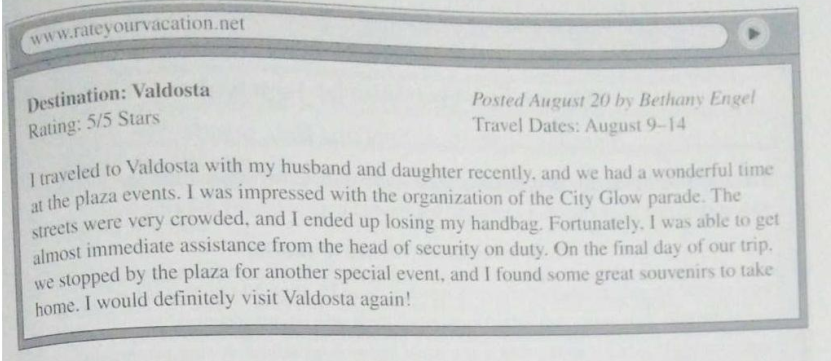 www.rateyourvacation.net
Destination: Valdosta
Rating: 5/5 Stars
Posted August 20 by Bethany Engel
Travel Dates: August 9–14
I traveled to Valdosta with my husband and daughter recently, and we had a wonderful time
at the plaza events. I was impressed with the organization of the City Glow parade. The
streets were very crowded, and I ended up losing my handbag. Fortunately, I was able to get
almost immediate assistance from the head of security on duty. On the final day of our trip,
we stopped by the plaza for another special event, and I found some great souvenirs to take
home. I would definitely visit Valdosta again!